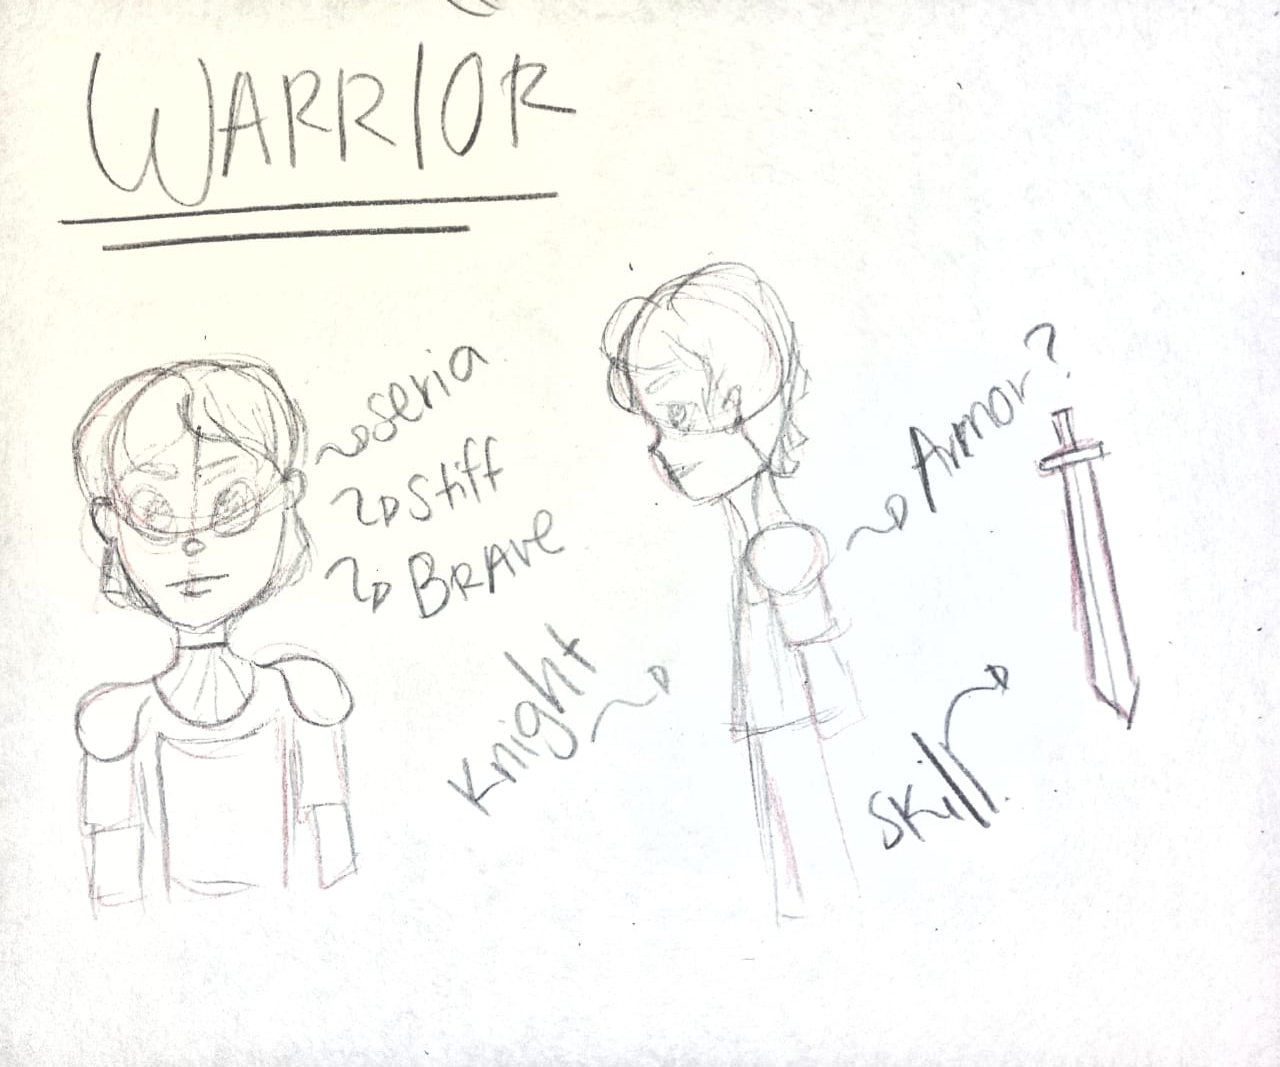 WARRIOR
seria
Stiff
BRAVE
Knight
Armor?
skill